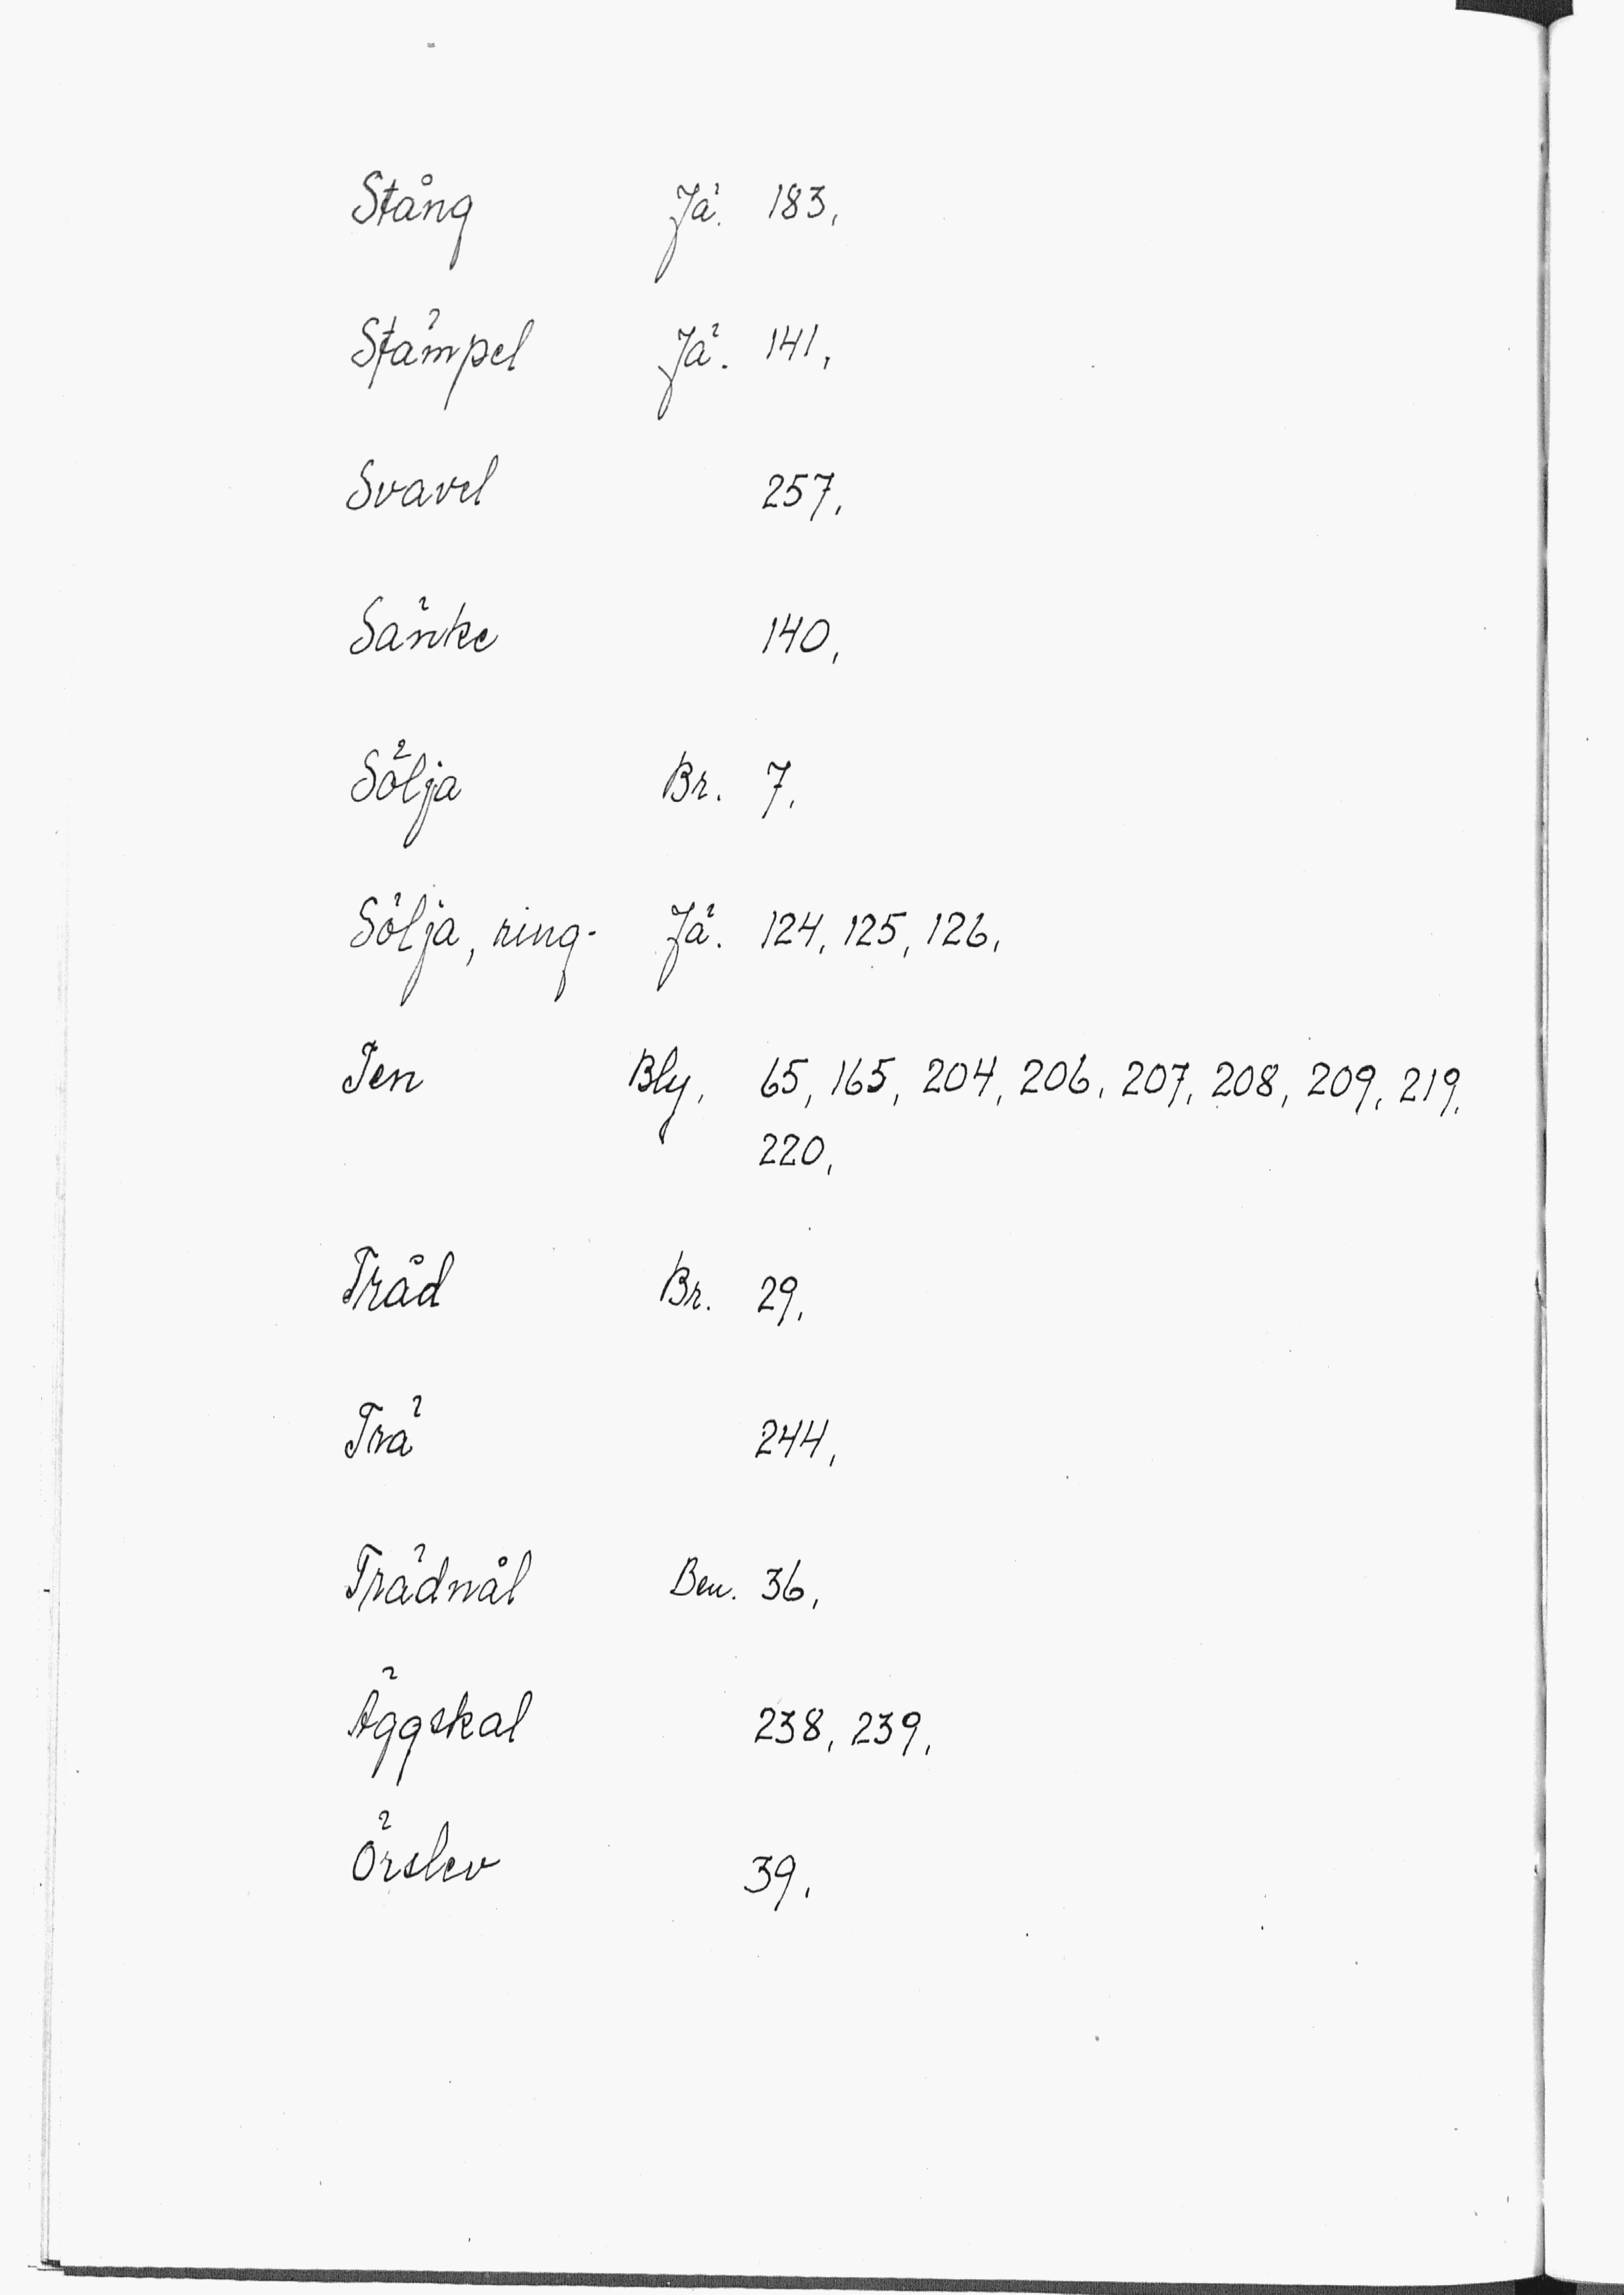 Stång Jä. 183,
Stämpel Jä. 141,
Svavel 257,
Sänke 140,
Sölja Br. 7,
Sölja, ring- Jä. 124, 125, 126,
Ten Bly, 65, 165, 204, 206, 207, 208, 209, 219,
220,
Tråd Br. 29,
Trä 244,
Trädnål Ben. 36,
Äggskal 238, 239,
Örslev 39,